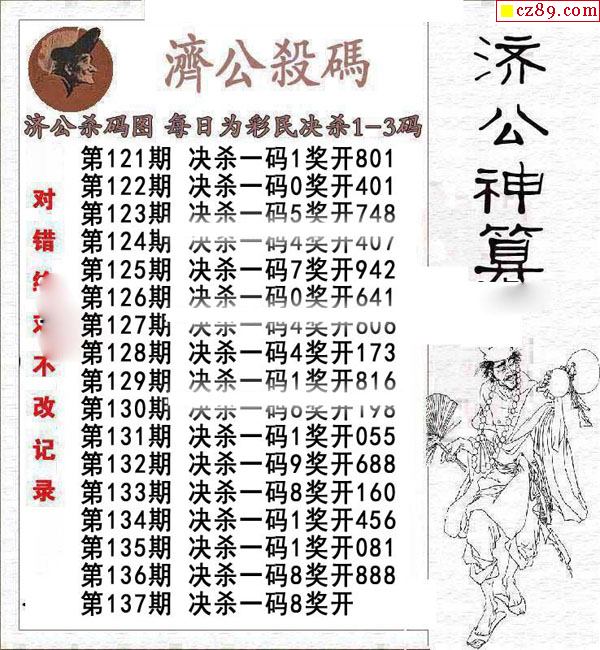 cz89.com
濟公殺碼
济公杀码图 每日为彩民决杀1-3码
第121期 决杀一码1奖开801
第122期 决杀一码0奖开401
第123期 决杀一码5奖开748
第124期 决杀一码4奖开407
第125期 决杀一码7奖开942
第126期 决杀一码0奖开641
第127期 决杀一码4奖开
第128期 决杀一码4奖开173
第129期 决杀一码1奖开816
第130期 决杀一码6奖开198
第131期 决杀一码1奖开055
第132期 决杀一码9奖开688
第133期 决杀一码8奖开160
第134期 决杀一码1奖开456
第135期 决杀一码1奖开081
第136期 决杀一码8奖开888
第137期 决杀一码8奖开
对错
不改记录
济公神算